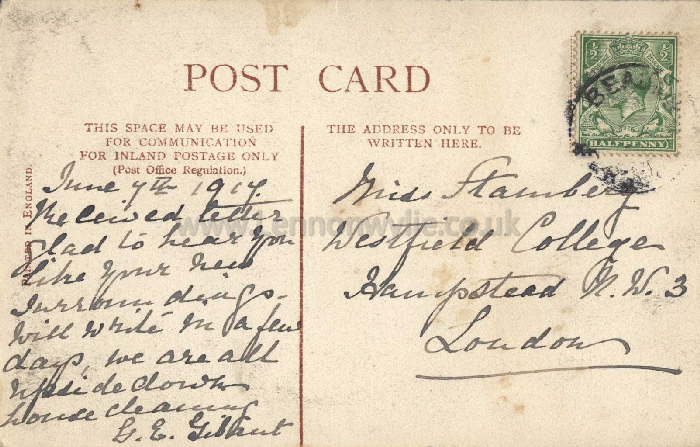 POST CARD
THIS SPACE MAY BE USED
FOR COMMUNICATION
FOR INLAND POSTAGE ONLY
(Post Office Regulation.)
THE ADDRESS ONLY TO BE
WRITTEN HERE.
PRINTED IN ENGLAND.
½ ½
HALFPENNY
www.Lennonwylie.co.uk
June 7th 1917
Received letter
glad to hear you
like your new
surroundings.
Will write in a few
days, we are all
upside down
house cleaning
G. E.
Miss
Westfield College
Hampstead N.W.3
London